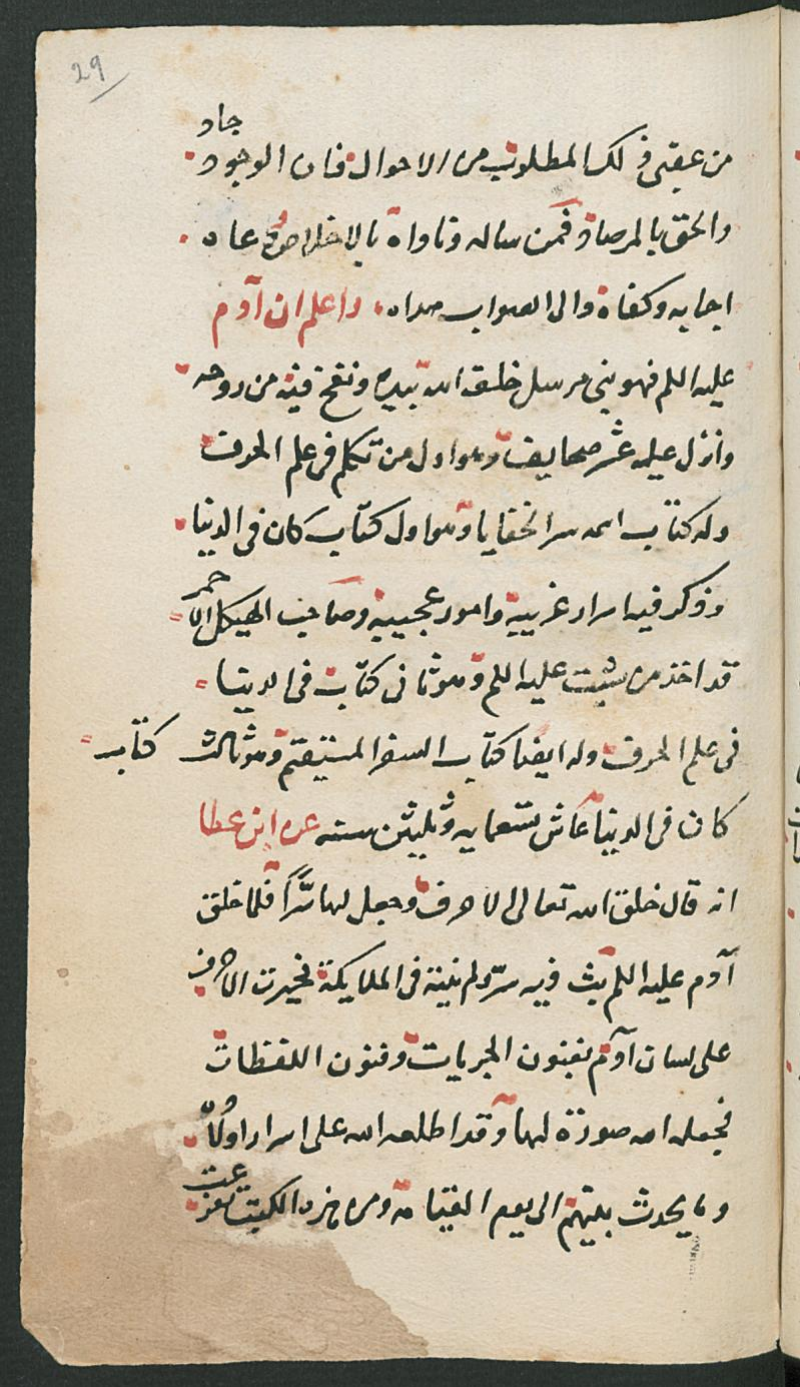 29
من عقبى ذلك المطلوب من الاحوال فان الوجود جاد
والحق بالمرصاد فمن ساله وناداه بالاخلاص دعاه
اجابه وكفاه والى الصواب هداه واعلم ان آدم
عليه اللم فهو نبى مرسل خلقه الله بيده ونفخ فيه من روحه
وانزل عليه عشر صحايف وهو اول من تكلم فى علم الحرف
وله كتاب اسمه سر الخفايا وهو اول كتاب كان فى الدنيا
وذكر فيه اسرار غريبة وامور عجيبة وصاحب الهيكل الاحمر
قد اخذ من شيث عليه اللم وهو ثانى كتاب فى الدنيا
فى علم الحرف وله ايضا كتاب السفر المستيقم وهو ثالث كتاب
كان فى الدنيا عاش تسعمايه وثلثين سنه عن ابن عطا
انه قال خلق الله تعالى الاحرف وجعل لها سرًا فلما خلق
آدم عليه اللم بث فيه سر ولم يبثه فى الملايكة فجرت الاحرف
على لسان آدم بفنون الجريات وفنون اللغظات
فجعله الله صورة لها وقد اطلعه الله على اسرار اولاده
وما يحدث بينهم الى يوم القيامة ومن هذه الكتب تفرعت